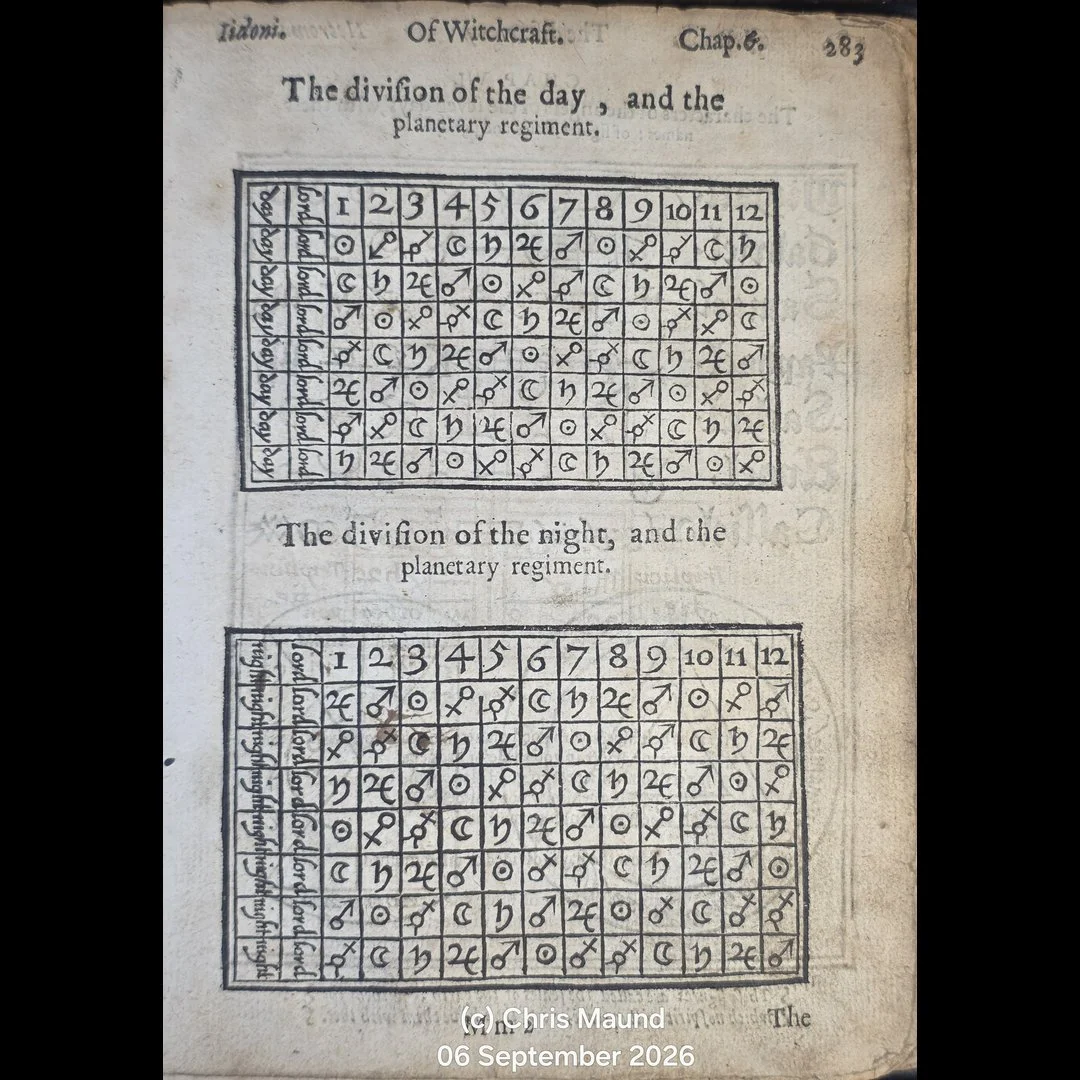 Iidoni. Of Witchcraft. Chap.6. 283
The diviſion of the day , and the
planetary regiment.
day lord 1 2 3 4 5 6 7 8 9 10 11 12
day lord ☉ ♀ ☿ ☽ ♄ ♃ ♂ ☉ ♀ ☿ ☽ ♄
day lord ☽ ♄ ♃ ♂ ☉ ♀ ☿ ☽ ♄ ♃ ♂ ☉
day lord ♂ ☉ ♀ ☿ ☽ ♄ ♃ ♂ ☉ ☿ ♀ ☽
day lord ☿ ☽ ♄ ♃ ♂ ☉ ♀ ☿ ☽ ♄ ♃ ♂
day lord ♃ ♂ ☉ ♀ ☿ ☽ ♄ ♃ ♂ ☉ ♀ ☿
day lord ☿ ♀ ☽ ♄ ♃ ♂ ☉ ♀ ☿ ☽ ♄ ♃
day lord ♄ ♃ ♂ ☉ ♀ ☿ ☽ ♄ ♃ ♂ ☉ ♀
The diviſion of the night, and the
planetary regiment.
night lord 1 2 3 4 5 6 7 8 9 10 11 12
night lord ♃ ♂ ☉ ♀ ☿ ☽ ♄ ♃ ♂ ☉ ♀ ☿
night lord ♀ ☿ ☽ ♄ ♃ ♂ ☉ ♀ ☿ ☽ ♄ ♃
night lord ♄ ♃ ♂ ☉ ♀ ☿ ☽ ♄ ♃ ♂ ☉ ♀
night lord ☉ ♀ ☿ ☽ ♄ ♃ ♂ ☉ ♀ ☿ ☽ ♄
night lord ☽ ♄ ♃ ♂ ☉ ♀ ☿ ☽ ♄ ♃ ♂ ☉
night lord ♂ ☉ ☿ ☽ ♄ ♂ ♃ ☉ ♀ ☽ ♀ ☿
night lord ☿ ☽ ♄ ♃ ♂ ☉ ♀ ☿ ☽ ♄ ♃ ♂
M m 2 The
(c) Chris Maund
06 September 2026